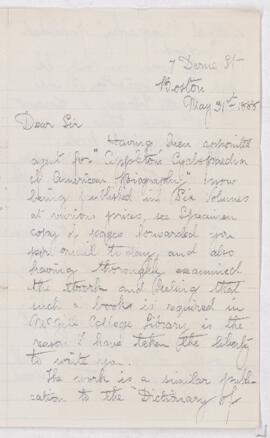 7 Derne St
Boston
May 31st 1888
Dear Sir
Having been appointed
agent for "Appletons Cyclopaedia
of American Biography" (now
being published in) Six Volumes
at various prices, see Specimen
copy of pages forwarded you
per mail to day, and also
having thoroughly examined
the work and feeling that
such a books is required in
McGill College Library is the
reason I have taken the liberty
to write you.
The work is a similar publi-
cation to the "Dictionary of